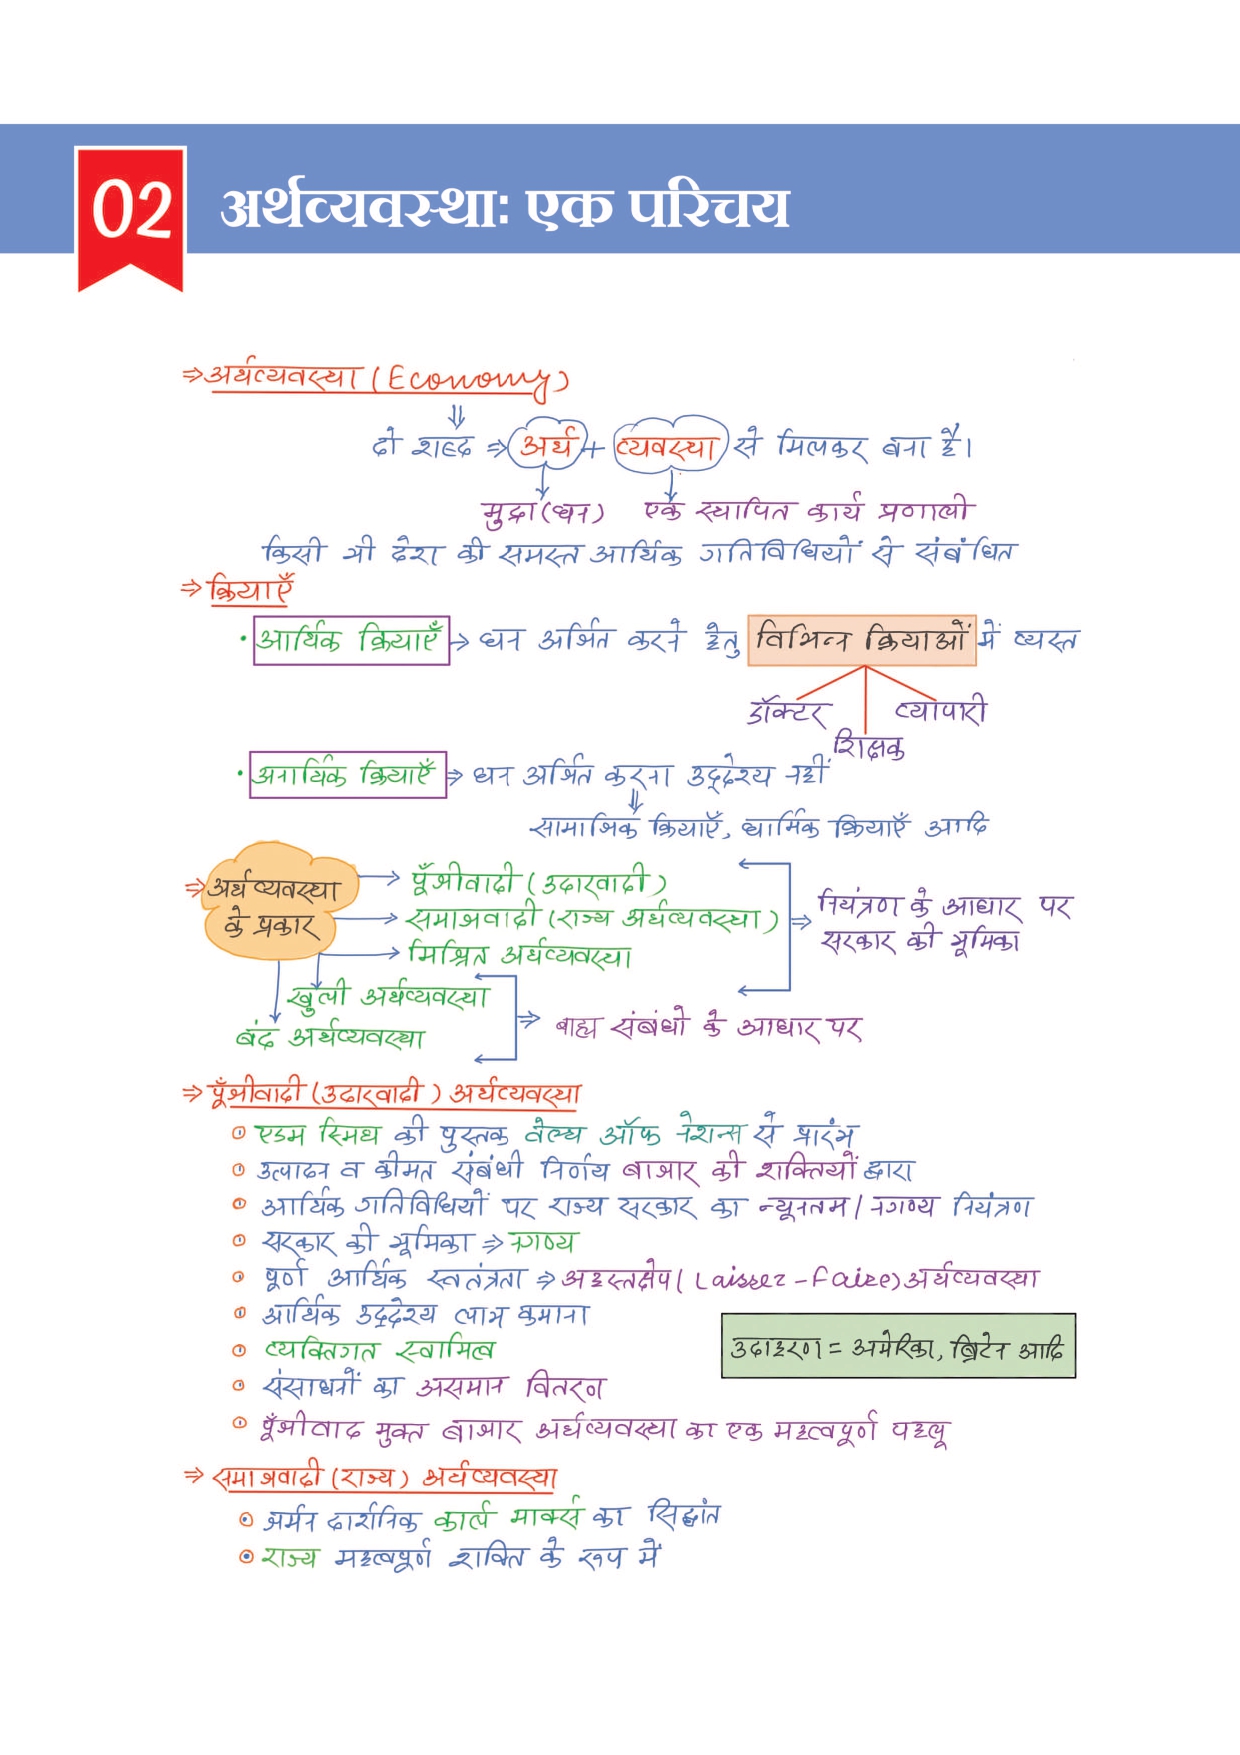 02
अर्थव्यवस्था: एक परिचय
⇒ अर्थव्यवस्था (Economy)
दो शब्द ⇒ अर्थ + व्यवस्था से मिलकर बना है।
मुद्रा (धन) एक स्थापित कार्य प्रणाली
किसी भी देश की समस्त आर्थिक गतिविधियों से संबंधित
⇒ क्रियाएँ
• आर्थिक क्रियाएँ → धन अर्जित करने हेतु विभिन्न क्रियाओं में व्यस्त
डॉक्टर व्यापारी
शिक्षक
• अनार्थिक क्रियाएँ ⇒ धन अर्जित करना उद्देश्य नहीं
सामाजिक क्रियाएँ, धार्मिक क्रियाएँ आदि
⇒ अर्थव्यवस्था के प्रकार
पूँजीवादी (उदारवादी)
समाजवादी (राज्य अर्थव्यवस्था)
मिश्रित अर्थव्यवस्था
⇒ नियंत्रण के आधार पर
सरकार की भूमिका
खुली अर्थव्यवस्था
बंद अर्थव्यवस्था
⇒ बाह्य संबंधो के आधार पर
⇒ पूँजीवादी (उदारवादी) अर्थव्यवस्था
एडम स्मिथ की पुस्तक वेल्थ ऑफ नेशन्स से प्रारंभ
उत्पादन व कीमत संबंधी निर्णय बाजार की शक्तियों द्वारा
आर्थिक गतिविधियों पर राज्य सरकार का न्यूनतम / नगण्य नियंत्रण
सरकार की भूमिका ⇒ नगण्य
पूर्ण आर्थिक स्वतंत्रता ⇒ अहस्तक्षेप (Laissez-Faire) अर्थव्यवस्था
आर्थिक उद्देश्य लाभ कमाना
व्यक्तिगत स्वामित्व
उदाहरण = अमेरिका, ब्रिटेन आदि
संसाधनों का असमान वितरण
पूँजीवाद मुक्त बाजार अर्थव्यवस्था का एक महत्वपूर्ण पहलू
⇒ समाजवादी (राज्य) अर्थव्यवस्था
जर्मन दार्शनिक कार्ल मार्क्स का सिद्धांत
राज्य महत्वपूर्ण शक्ति के रूप में